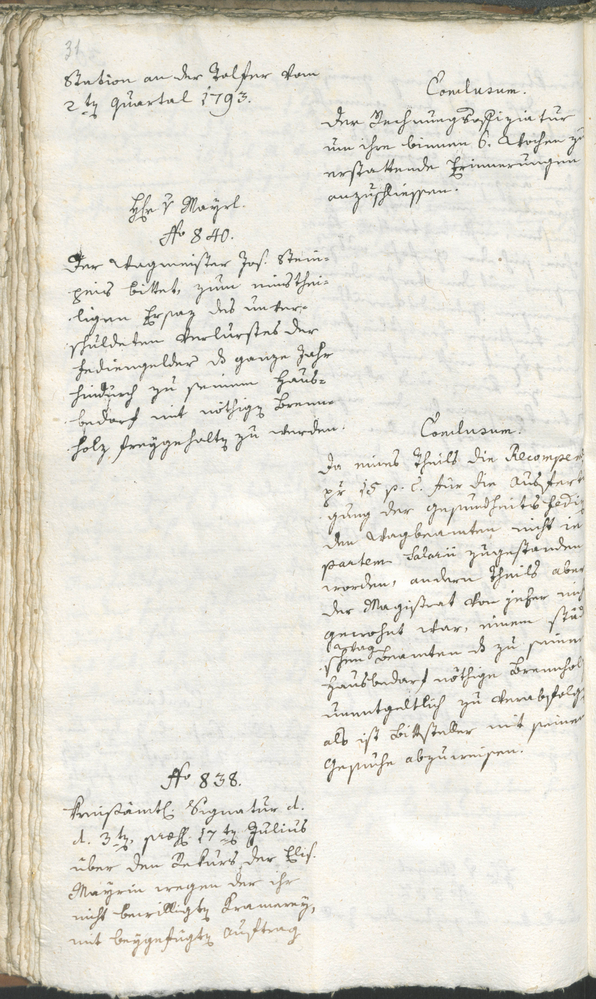 31
Station an der Talfer vom
2ten Quartal 1793.
Conclusum.
Der Rechnungsoffiziatur
um ihre binnen 6. Wochen zu
erstattende Erinnerungen
anzuschliessen.
Mayrl.
No 840.
Der Wagmeister Jos. Stein-
bittet, zum
ligen Ersaz des unver-
schuldeten Verlurstes der
Fediengelder das ganze Jahr
hindurch zu seinem Haus-
bedarf mit nöthigen Brenn-
holz freygehalten zu werden.
Conclusum.
Da eines Theils die Recompens
pr 15 p. C. für die Ausfert
gung der Gesundheits Fedi
den Wagbeamten nicht in
partem Salarii zugestanden
worden, andern Theils aber
der Magistrat von jeher nicht
gewohnt war, einem städ
schen Wag Beamten das zu seinem
Hausbedarf nöthige Brennhol
unentgeltlich zu verabfolg
als ist Bittsteller mit seinem
Gesuche abzuweisen.
No 838.
Kreisämtl. Signatur d.
d. 3ten, praes. 17ten Julius
über den Rekurs der Elis.
Mayrin wegen der ihr
nicht bewilligten Kramerey,
mit beygefügten Auftrag